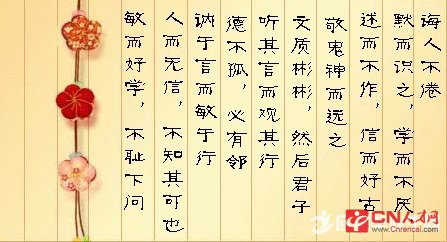 诲人不倦
默而识之，学而不厌
述而不作，信而好古
敬鬼神而远之
文质彬彬，然后君子
听其言而观其行
德不孤，必有邻
讷于言而敏于行
人而无信，不知其可也
敏而好学，不耻下问
CN人才网
Cnrencai.com